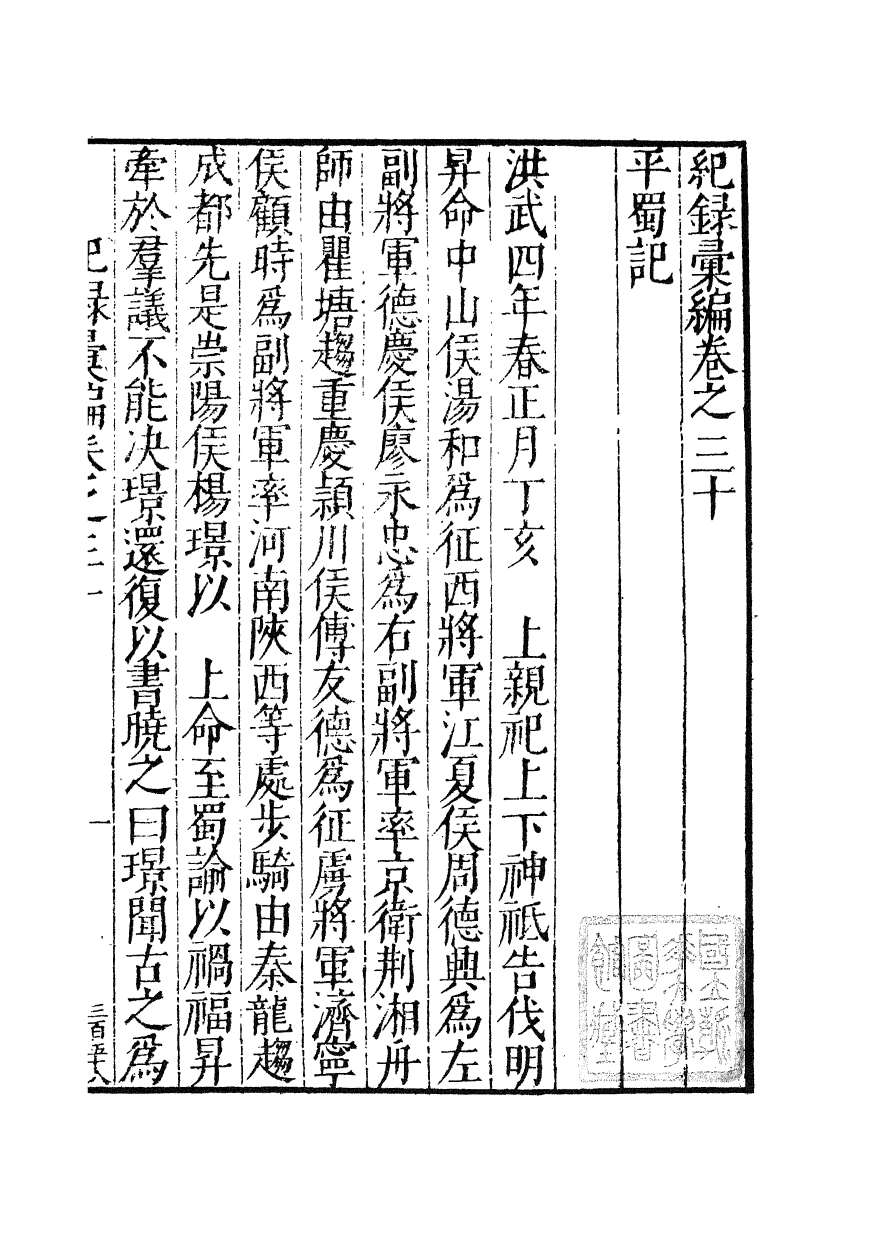 紀録彙編卷之三十
平蜀記
洪武四年春正月丁亥　上親祀上下神祗告伐明
昇命中山侯湯和爲征西將軍江夏侯周德興爲左
副將軍德慶侯廖永忠爲右副將軍率京衛荆湘舟
師由瞿塘趨重慶潁川侯傅友德爲征虜將軍濟寧
侯顧時爲副將軍率河南陝西等處步騎由秦龍趨
成都先是崇陽侯楊璟以　上命至蜀諭以禍福昇
牽於羣議不能决璟還復以書曉之曰璟聞古之爲
紀録彙編卷之三十
一